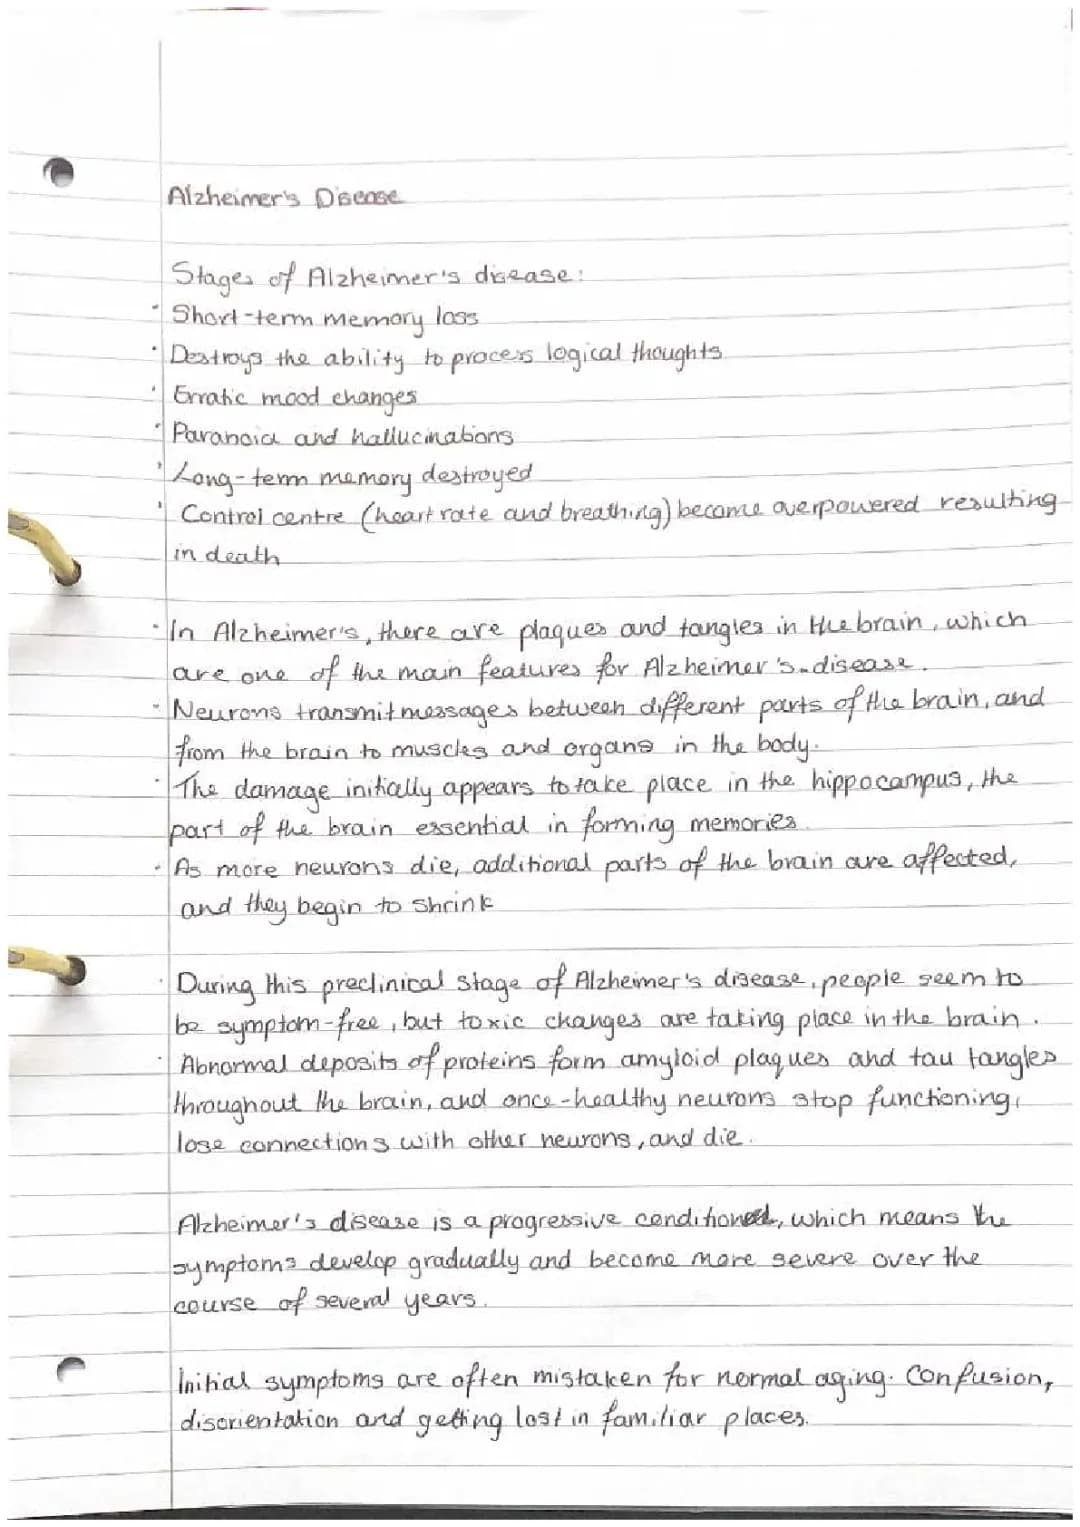 Alzheimer's Disease
Stages of Alzheimer's disease:
· Short-term memory loss
· Destroys the ability to process logical thoughts
· Erratic mood changes
· Paranoia and hallucinations
· Long-term memory destroyed
· Control centre (heart rate and breathing) become overpowered resulting
in death
· In Alzheimer's, there are plaques and tangles in the brain, which
are one of the main features for Alzheimer's disease.
· Neurons transmit messages between different parts of the brain, and
from the brain to muscles and organs in the body.
· The damage initially appears to take place in the hippocampus, the
part of the brain essential in forming memories.
· As more neurons die, additional parts of the brain are affected,
and they begin to shrink
· During this preclinical stage of Alzheimer's disease, people seem to
be symptom-free, but toxic changes are taking place in the brain.
· Abnormal deposits of proteins form amyloid plaques and tau tangles
throughout the brain, and once-healthy neurons stop functioning,
lose connections with other neurons, and die.
Alzheimer's disease is a progressive condition, which means the
symptoms develop gradually and become more severe over the
course of several years.
Initial symptoms are often mistaken for normal aging. Confusion,
disorientation and getting lost in familiar places.